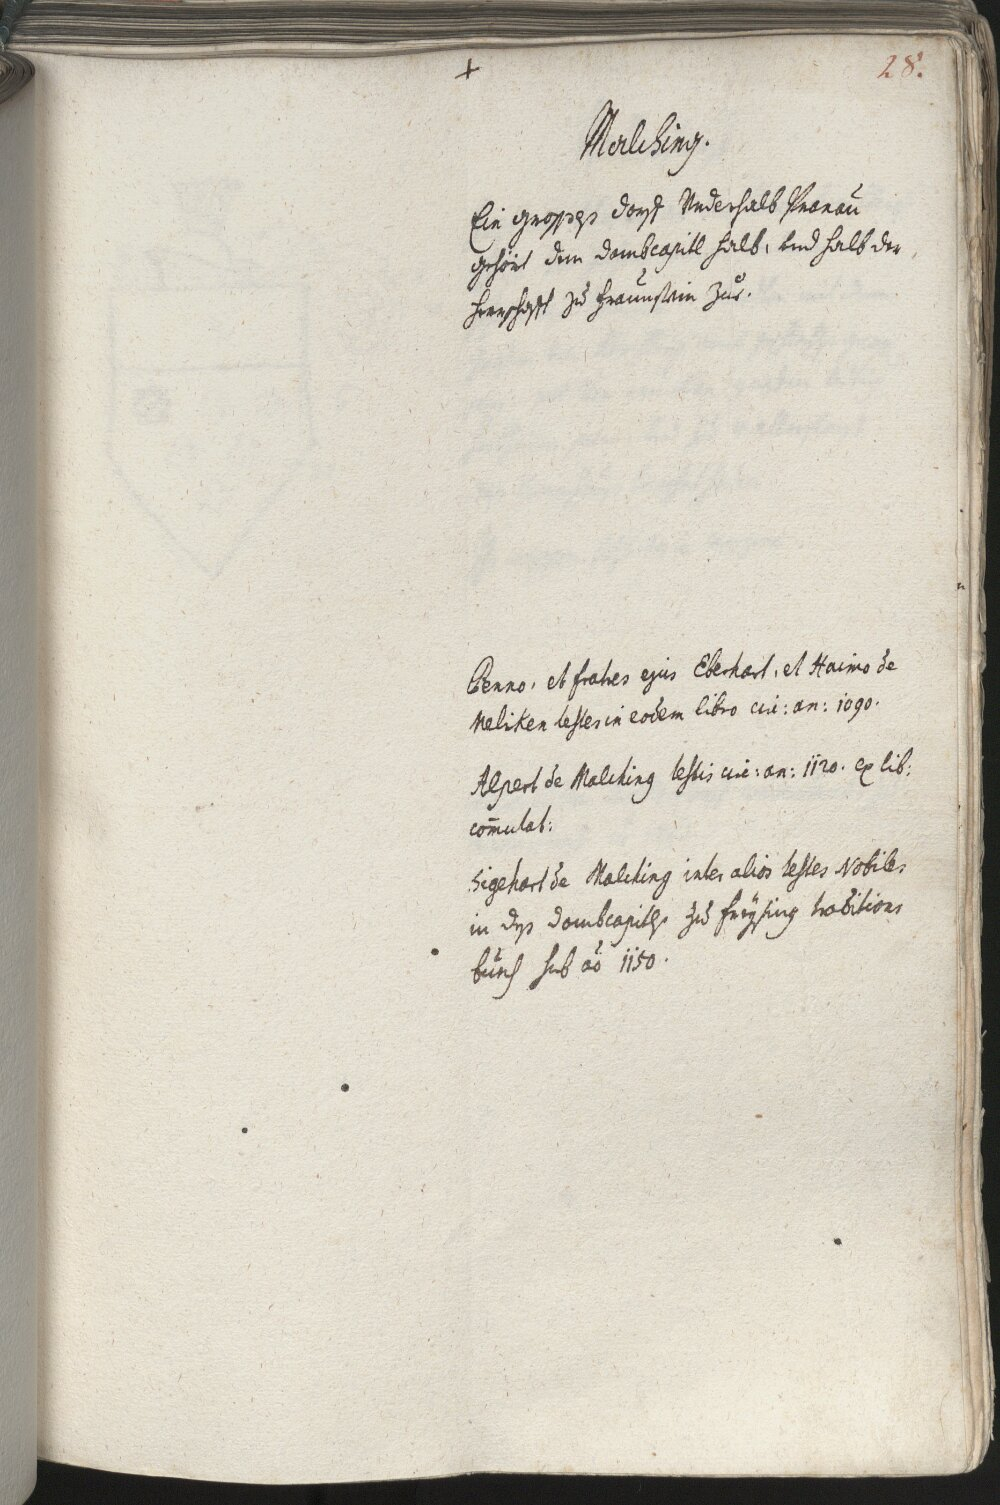 +
28.
Malching.
Ein grosses dorff Underhalb Pranaü
gehört dem dombcapitl halb, und halb der
herrschafft zů fraunstein zue.
Benno, et fratres ejus Eberhart, et Haimo de
Meliken testes in eodem libro cir: an: 1090.
Alpert de Malching testis cir: an: 1120. ex lib:
com̄utat:
Sigehart de Malching inter alios testes Nobiles
in dess dombcapitls zů freÿsing traditions
būech sub aō 1150.